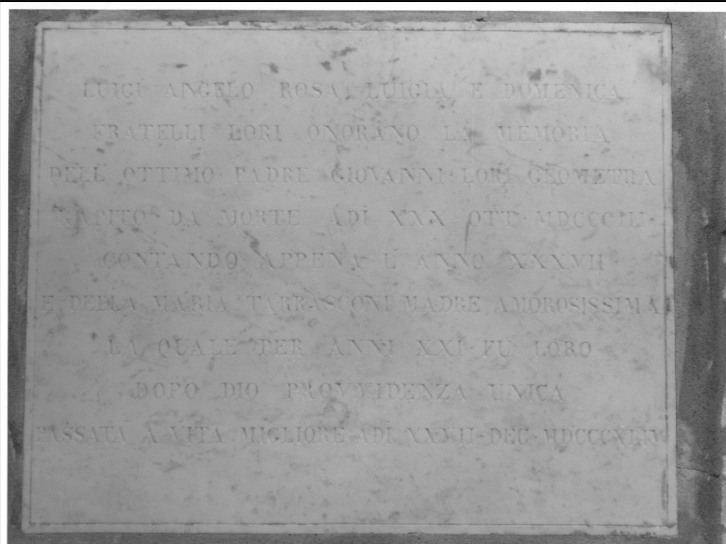 LUIGI ANGELO ROSA LUIGIA E DOMENICA
FRATELLI LORI ONORANO LA MEMORIA
DELL OTTIMO PADRE GIOVANNI LORI GEOMETRA
RAPITO DA MORTE ADI XXX OTT
CONTANDO APPENA L ANNO XXXVII
E DELLA MARIA TARRASCONI MADRE AMOROSISSIMA
LA QUALE PER ANNI XXI FU LORO
DOPO DIO PROVVIDENZA UNICA
PASSATA A VITA MIGLIORE ADI XXVII DEC